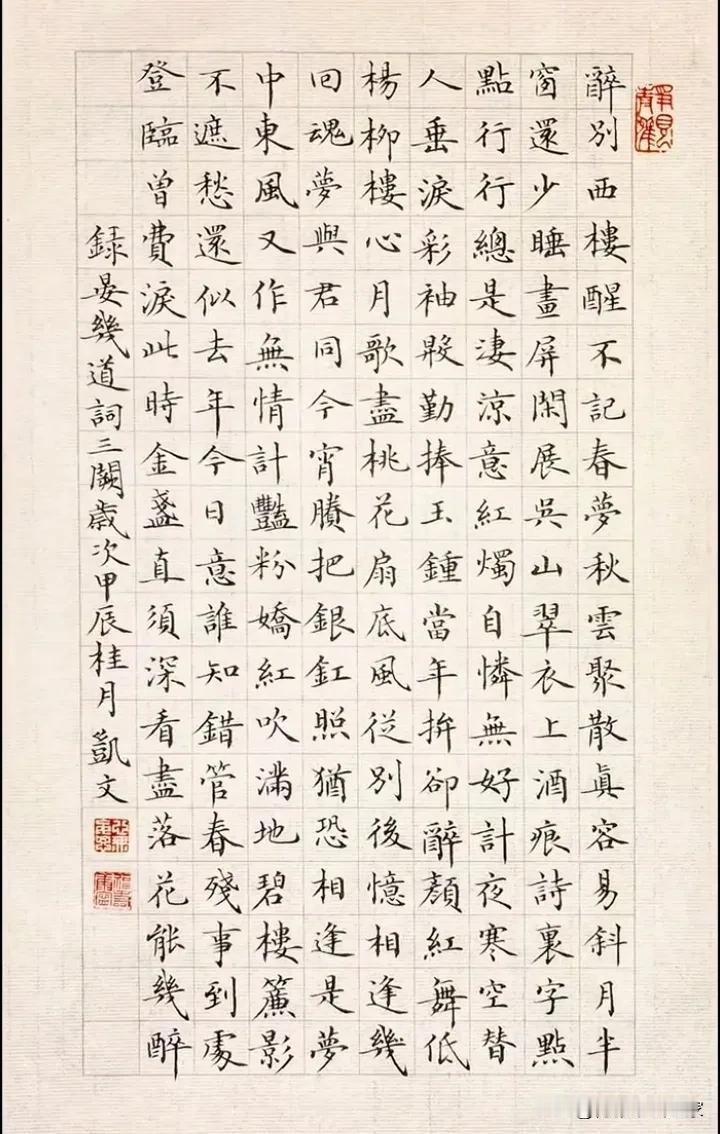 醉別西樓醒不記春夢秋雲聚散眞容易斜月半
窗還少睡畫屏閑展吳山翠衣上酒痕詩裏字點
點行行總是淒涼意紅燭自憐無好計夜寒空替
人垂淚彩袖殷勤捧玉鍾當年拚卻醉顏紅舞低
楊柳樓心月歌盡桃花扇底風從別後憶相逢幾
回魂夢與君同今宵賸把銀釭照猶恐相逢是夢
中東風又作無情計豔粉嬌紅吹滿地碧樓簾影
不遮愁還似去年今日意誰知錯管春殘事到處
登臨曾費淚此時金盞直須深看盡落花能幾醉
録晏幾道詞三闋歲次甲辰桂月凱文